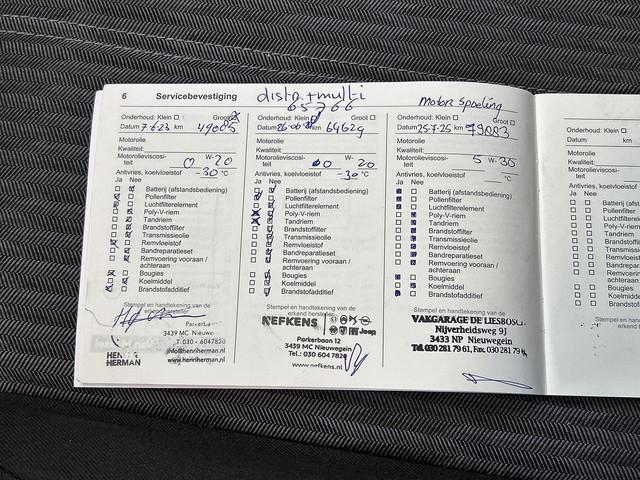 6 Servicebevestiging
distr.+multi
65766
Motor Spoeling
Onderhoud: Klein Groot
Datum 7-6-23 km 49005
Motorolie
Kwaliteit:
Motorolieviscosi-
teit 0 W- 20
Antivries, koelvloeistof -30 °C
Ja Nee
Batterij (afstandsbediening)
Pollenfilter
Luchtfilterelement
Poly-V-riem
Tandriem
Brandstoffilter
Transmissieolie
Remvloeistof
Bandreparatieset
Remvoering vooraan /
achteraan
Bougies
Koelmiddel
Brandstofadditief
Stempel en handtekening van de
erkend hersteller
Parkerbaan
3439 MC Nieuwe
T 030 - 6047820
info@henriherman.nl
www.henriherman.nl
HENRI
HERMAN
Onderhoud: Klein Groot
Datum km 64629
Motorolie
Kwaliteit:
Motorolieviscosi-
teit 0 W- 20
Antivries, koelvloeistof -30 °C
Ja Nee
Batterij (afstandsbediening)
Pollenfilter
Luchtfilterelement
Poly-V-riem
Tandriem
Brandstoffilter
Transmissieolie
Remvloeistof
Bandreparatieset
Remvoering vooraan /
achteraan
Bougies
Koelmiddel
Brandstofadditief
Stempel en handtekening van de
erkend hersteller
NEFKENS
Jeep
Parkerbaan 12
3439 MC Nieuwegein
Tel.: 030 604 7820
www.nefkens.nl
Onderhoud: Klein Groot
Datum 25-7-25 km 79883
Motorolie
Kwaliteit:
Motorolieviscosi-
teit 5 W- 30
Antivries, koelvloeistof °C
Ja Nee
Batterij (afstandsbediening)
Pollenfilter
Luchtfilterelement
Poly-V-riem
Tandriem
Brandstoffilter
Transmissieolie
Remvloeistof
Bandreparatieset
Remvoering vooraan /
achteraan
Bougies
Koelmiddel
Brandstofadditief
Stempel en handtekening van de
erkend hersteller
VAKGARAGE DE LIESBOSCH
Nijverheidsweg 9J
3433 NP Nieuwegein
Tel. 030 281 79 61, Fax. 030 281 79
Onderhoud: Klein
Datum km
Motorolie
Kwaliteit:
Motorolieviscosi-
teit
Antivries, koelvloeistof
Ja Nee
Batterij (afstands
Pollenfilter
Luchtfilterelement
Poly-V-riem
Tandriem
Brandstoffilter
Transmissieolie
Remvloeistof
Bandreparatieset
Remvoering
achteraan
Bougies
Koelmiddel
Brandstofadditief
Stempel en hand
erkend h